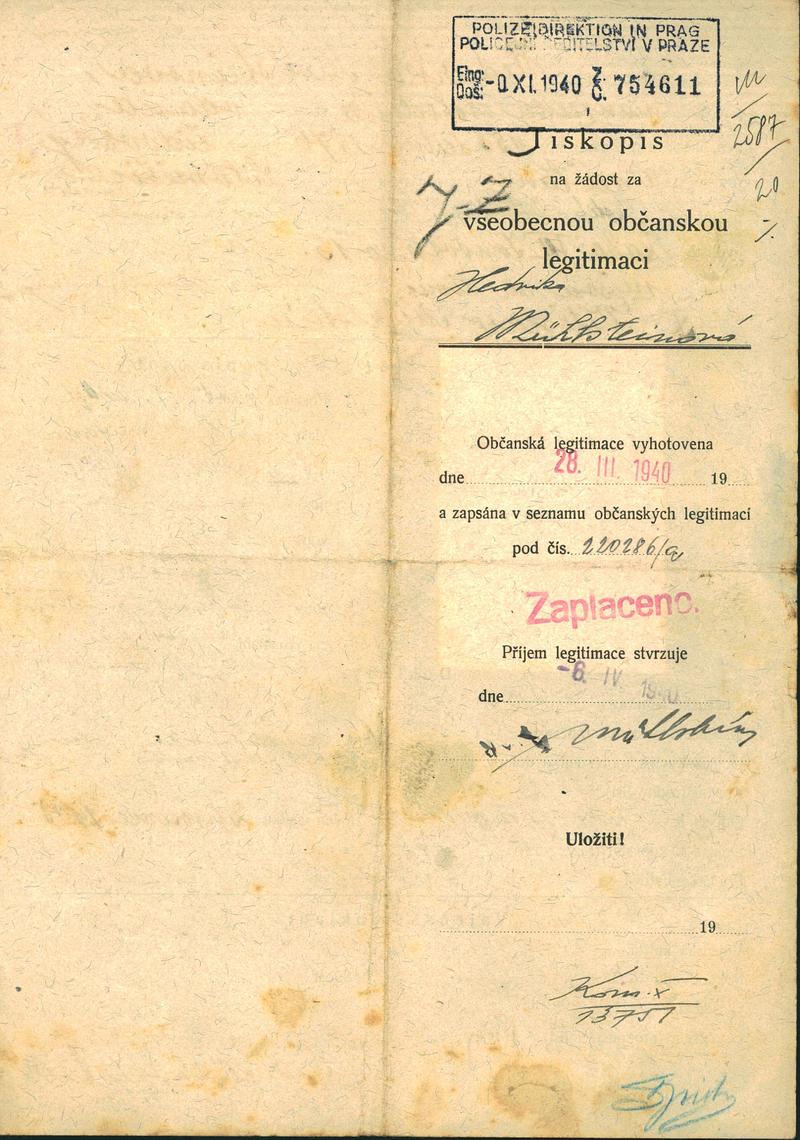 POLIZEIDIREKTION IN PRAG
POLICEJNÍ ŘEDITELSTVÍ V PRAZE
Eing:
Doš:
XI. 1940
Z.
Č. 754611
2587
20
Tiskopis
na žádost za
všeobecnou občanskou
legitimaci
Hedvika
Mühlsteinová
Občanská legitimace vyhotovena
28. III. 1940
dne 19
a zapsána v seznamu občanských legitimací
pod čís. 220286/a
Zaplaceno.
Příjem legitimace stvrzuje
-6. IV 1940
dne
Uložiti!
19
Kom. X
13751